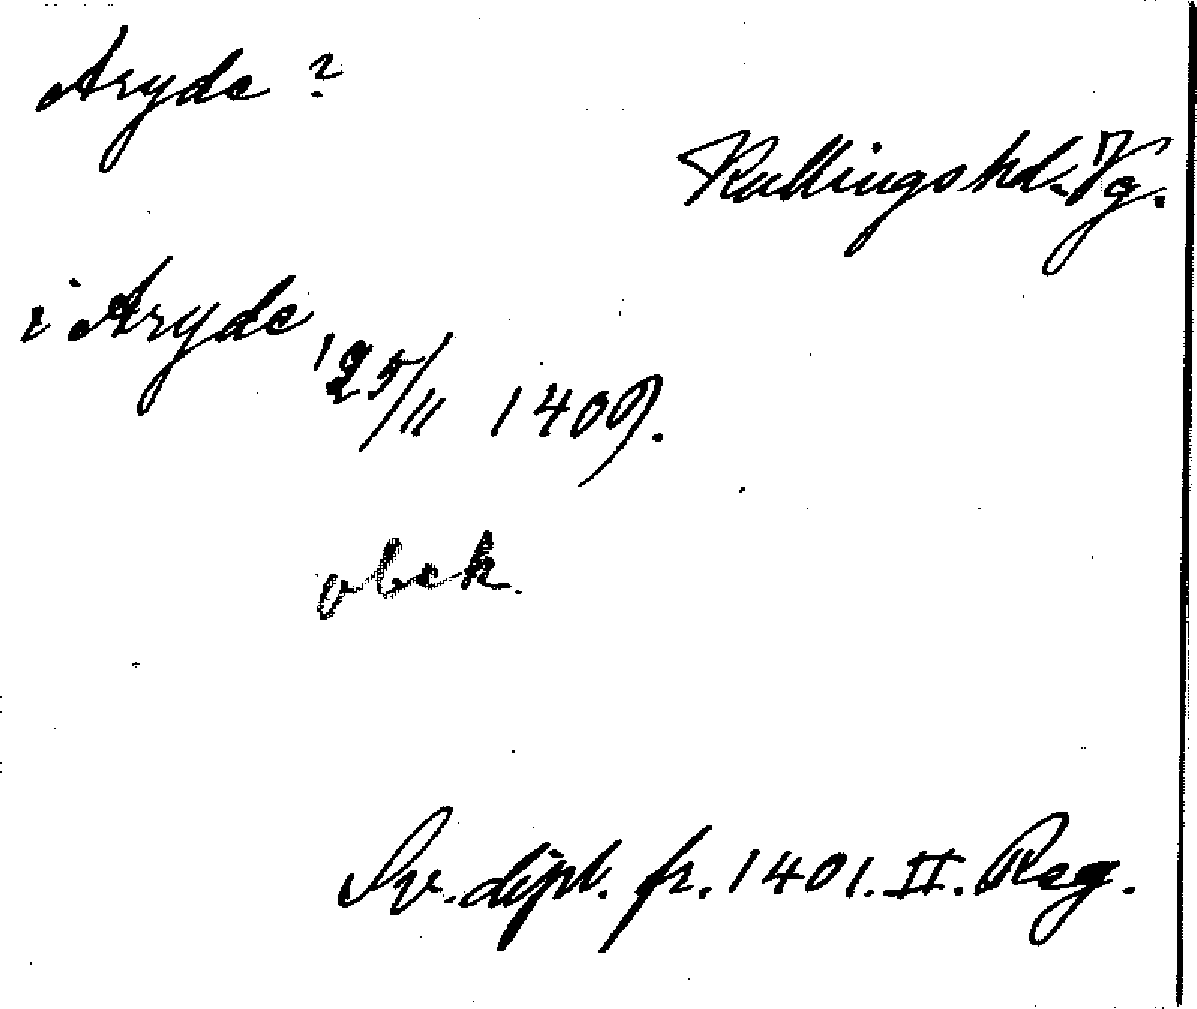 Aryde ?
Kullings hd. Vg.
i Aryde 25/11 1409.
obek.
Sv. dipl. fr. 1401. II. Reg.